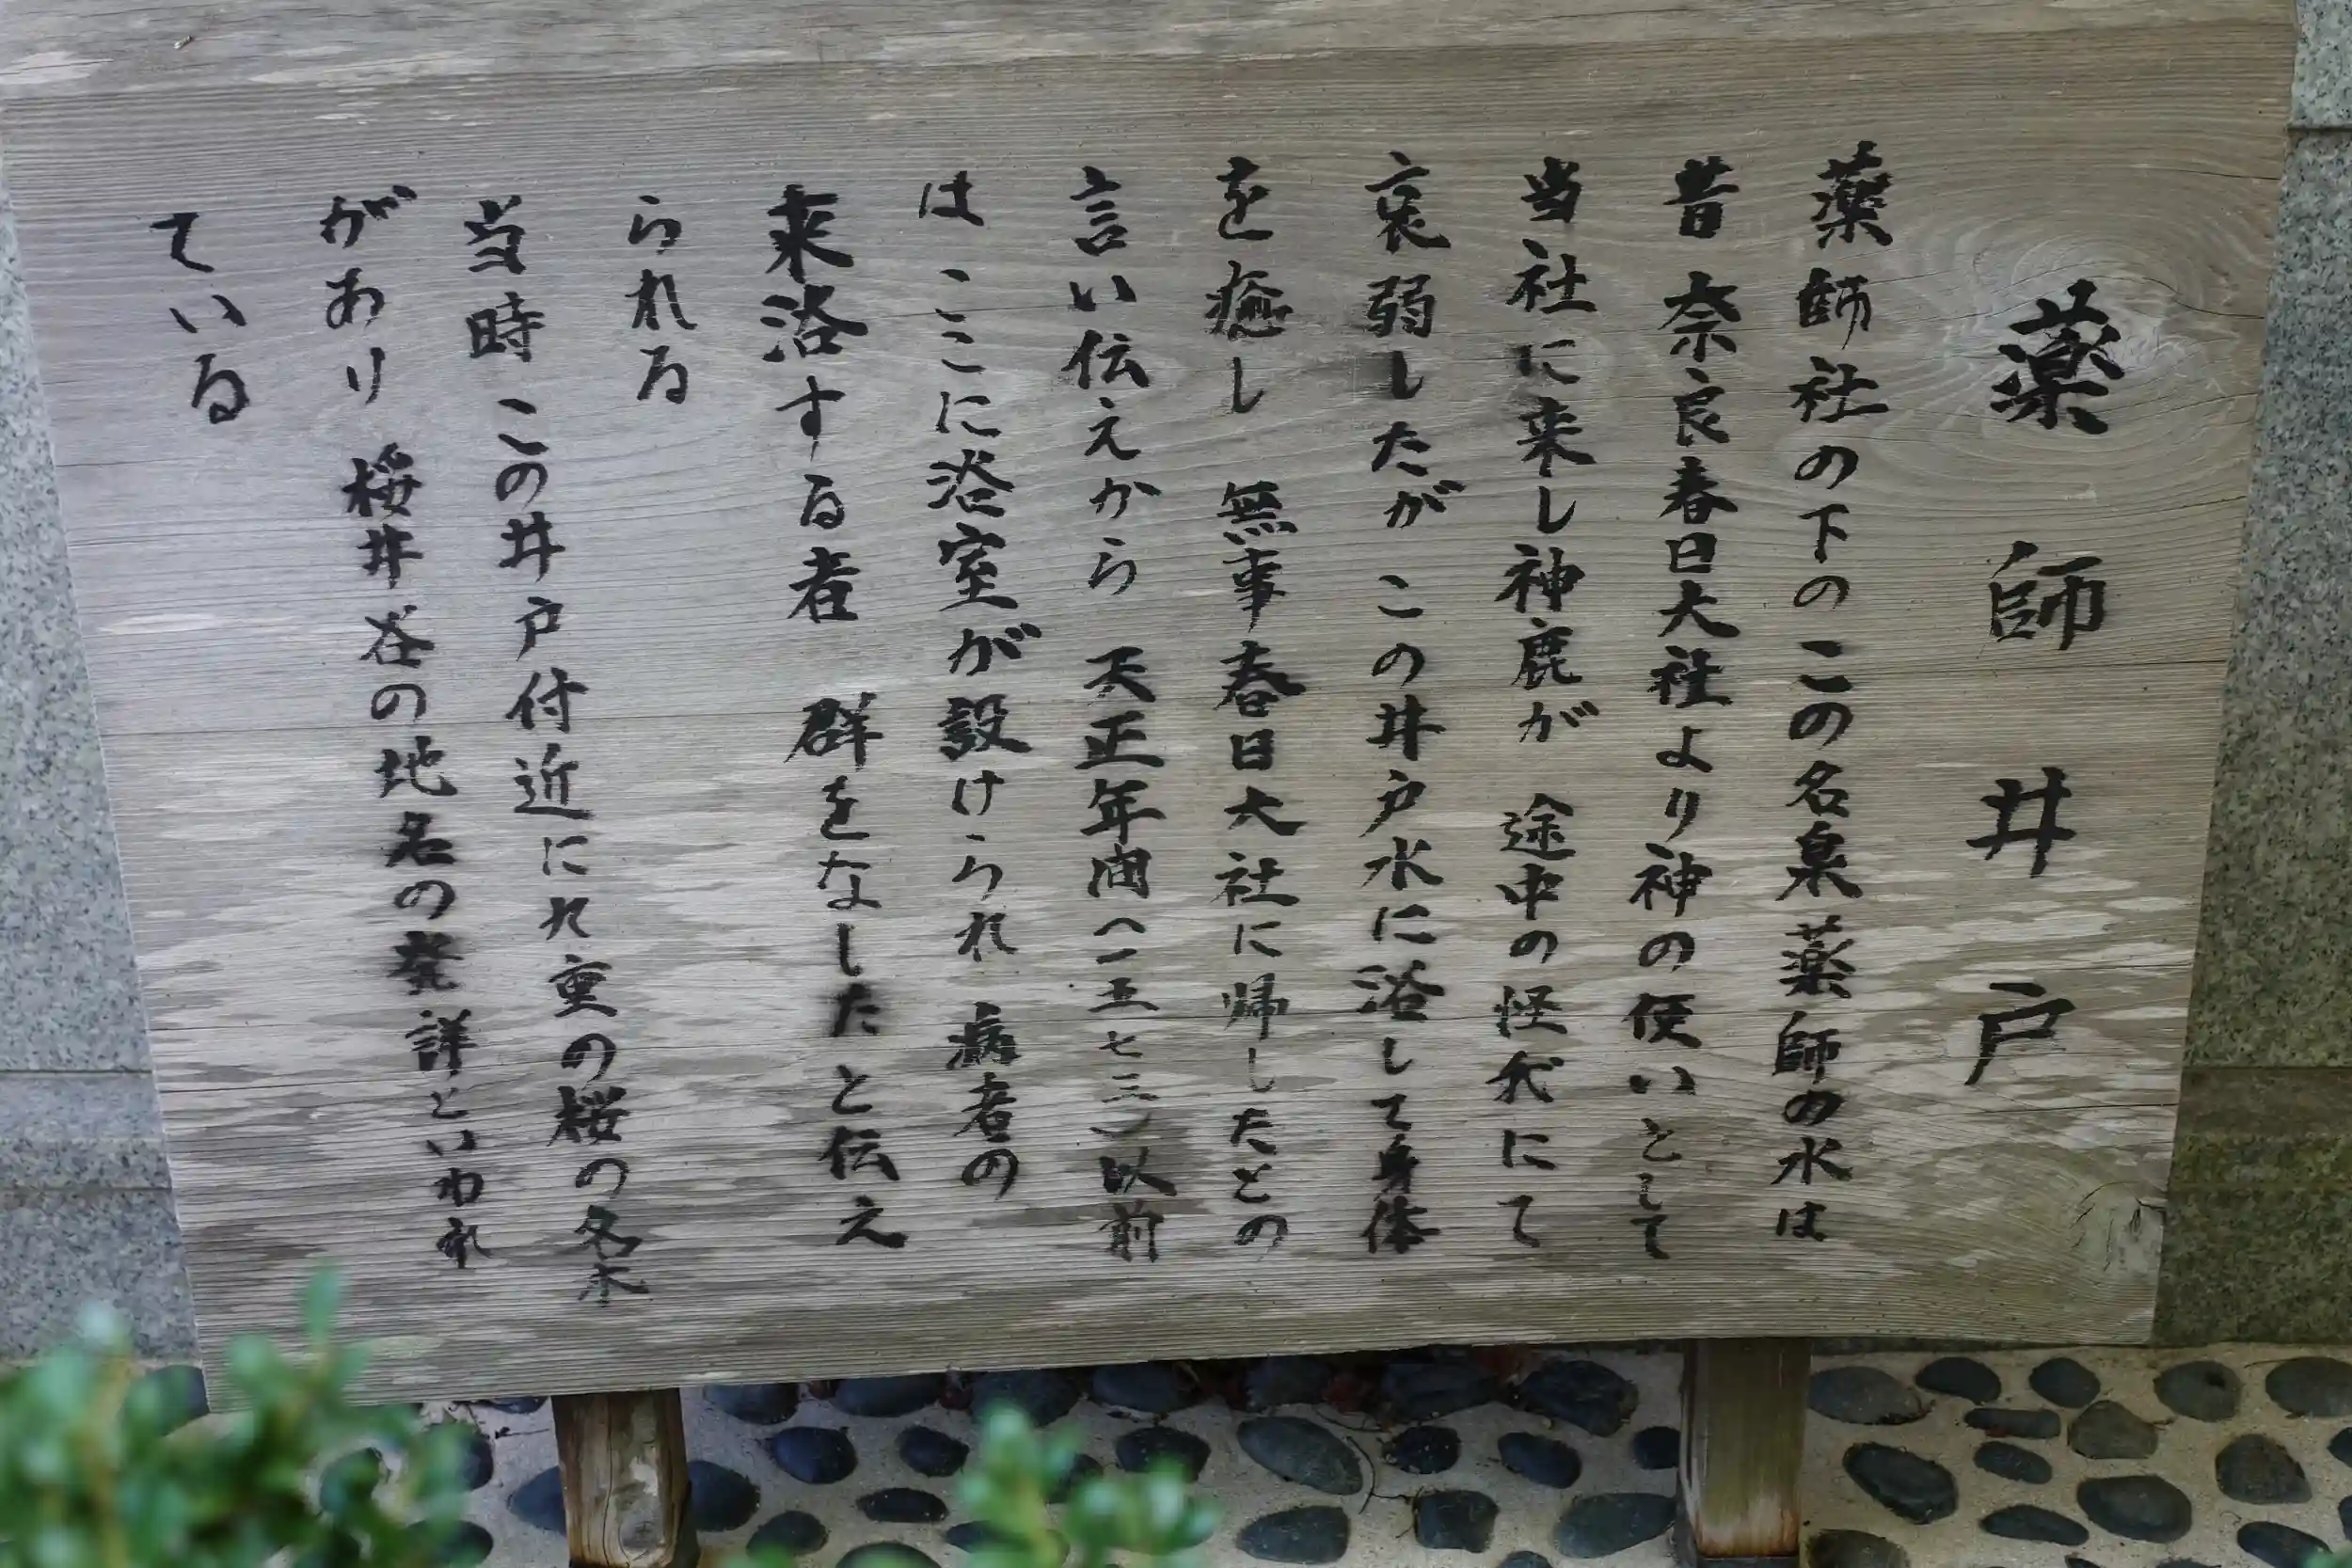 薬師井戸
薬師社の下のこの名泉薬師の水は
昔奈良春日大社より神の使いとして
当社に来し神鹿が 途中の怪我にて
衰弱したが この井戸水に浴して身体
を癒し 無事春日大社に帰したとの
言い伝えから 天正年间(一五七三)以前
は ここに浴室が設けられ 病者の
来浴する者 群をなしたと伝え
られる
当時 この井戸付近に九重の桜の名木
があり 桜井谷の地名の発詳といわれ
ている